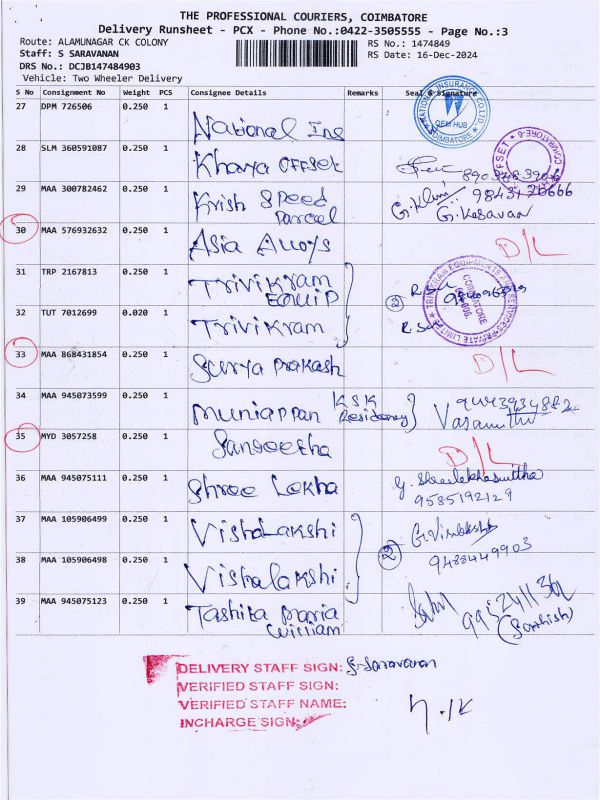 THE PROFESSIONAL COURIERS, COIMBATORE
Delivery Runsheet - PCX - Phone No.:0422-3505555 - Page No.:3
Route: ALAMUNAGAR CK COLONY
RS No.: 1474849
Staff: S SARAVANAN
RS Date: 16-Dec-2024
DRS No.: DCJB147484903
Vehicle: Two Wheeler Delivery
S No Consignment No Weight PCS Consignee Details Remarks Seal & Signature
27 DPM 726506 0.250 1 National Ins
NATIONAL INSURANCE CO LTD
OEM HUB
COIMBATORE
28 SLM 360591087 0.250 1 Kharya OFFSET
OFFSET COIMBATORE-6
29 MAA 300782462 0.250 1 Krish Speed
Parcel
G. Kesavan
30 MAA 576932632 0.250 1 Asia Alloys D/L
31 TRP 2167813 0.250 1 Trivikram
EQUIP
32 TUT 7012699 0.020 1 Trivikram
2
33 MAA 868431854 0.250 1 Surya prakash D/L
34 MAA 945073599 0.250 1 Muniappan KSK
Residency
35 MYD 3057258 0.250 1 Sangeetha D/L
36 MAA 945075111 0.250 1 Shree Lekha
9585192129
37 MAA 105906499 0.250 1 Vishalakshi
38 MAA 105906498 0.250 1 Vishalakshi 2
9488449903
39 MAA 945075123 0.250 1 Tashita Maria
William
(Sathish)
DELIVERY STAFF SIGN: S. Saravanan
VERIFIED STAFF SIGN:
VERIFIED STAFF NAME:
INCHARGE SIGN: